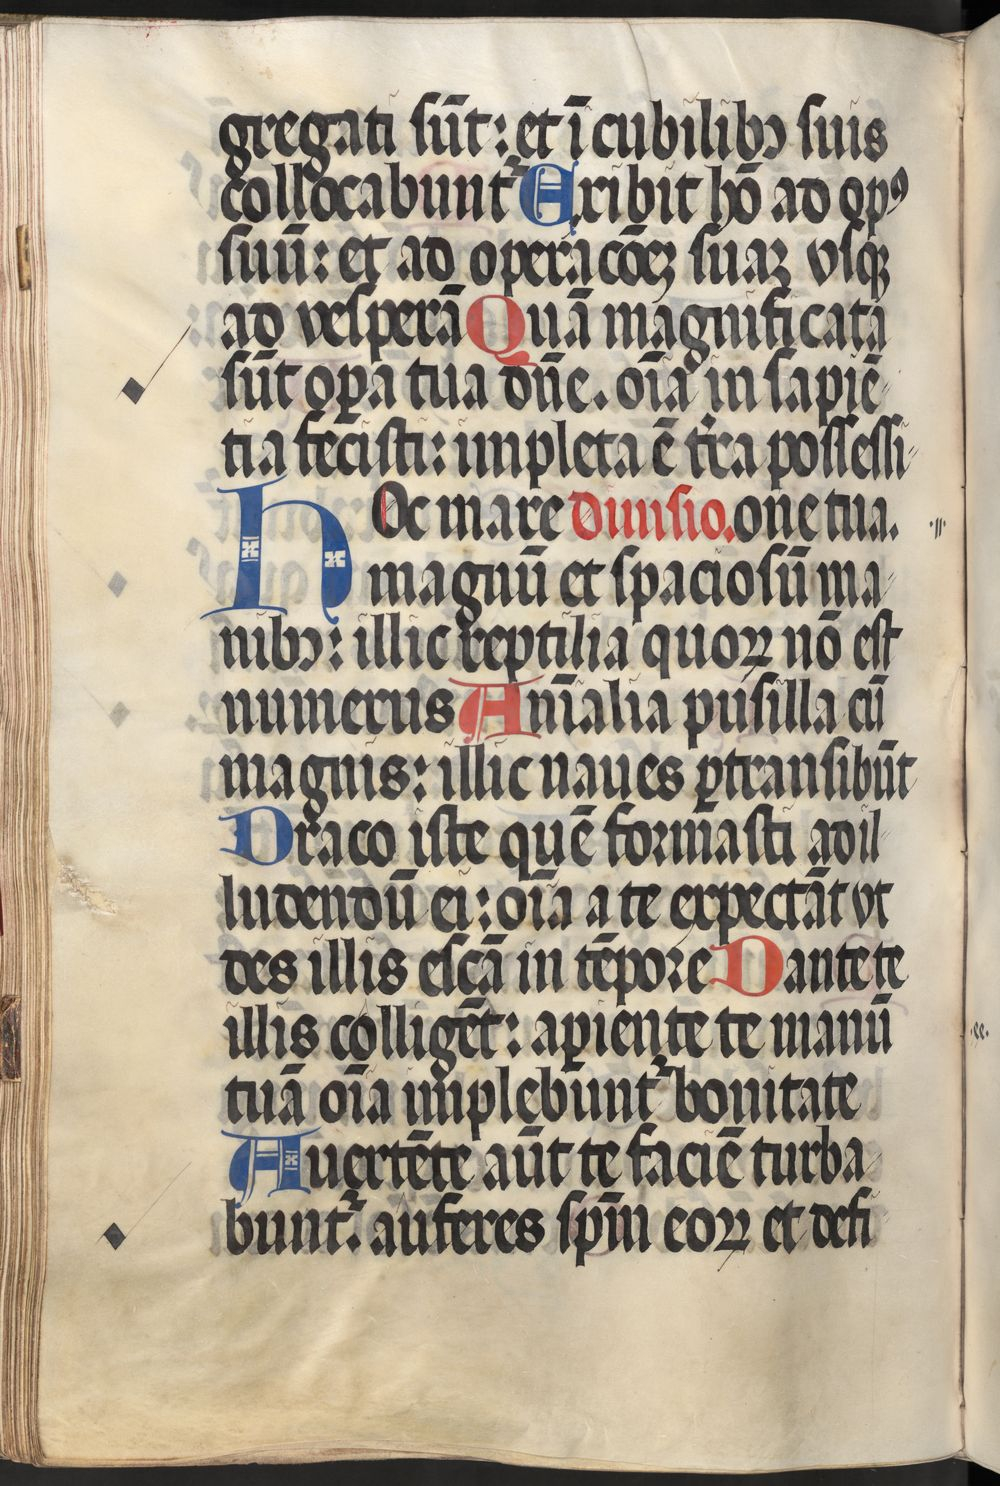 gregati sūt: et ī cubilibꝫ suis
collocabunt᷑ Exibit hō ad opꝰ
suū: et ad operacōeꝫ suaꝫ vsqꝫ
ad vesperā Quā magnificata
sūt oꝑa tua dn̄e. oīa in sapiē
tia fecisti: impleta ē tr̄a possessi
HOc mare Diuisio. one tua.
magnū et spaciosū ma
nibꝫ: illic reptilia quoꝝ nō est
numerus Anīalia pusilla cū
magnis: illic naues ꝑtransibūt
Draco iste quē formasti ad il
ludendū ei: oīa a te expectāt vt
des illis escā in tēpore Dante te
illis colligēt: apiente te manū
tuā oīa implebunt᷑ bonitate
Auertēte aūt te faciē turba
bunt᷑. auferes spm̄ eoꝝ et defi